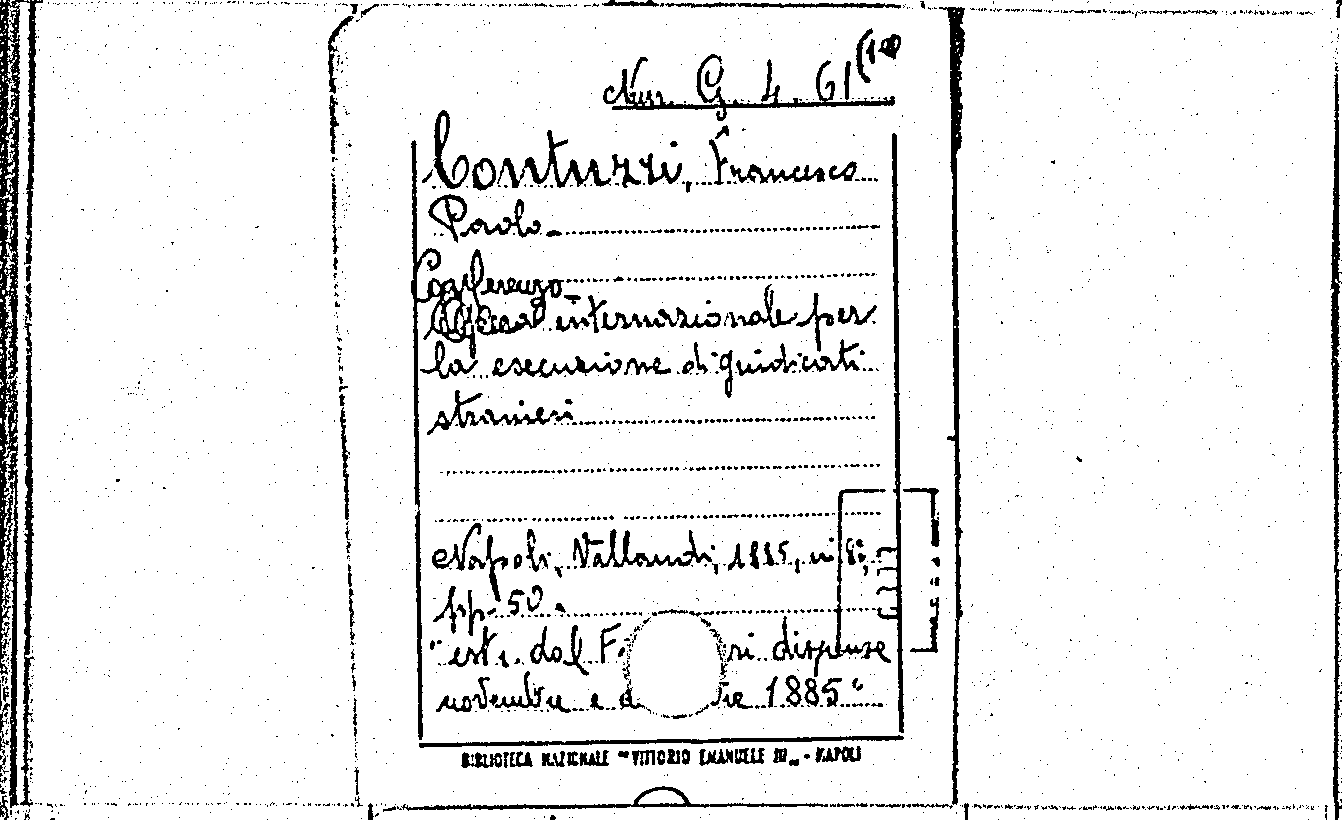 Nun. G. 4. 61 (10
Contuzzi, Francesco
Paolo_
Conferenza
internazionale per
la esecuzione di giudicati
stranieri
Napoli, Vallardi, 1885, in 8°,
pp. 50.
"estr. dal F ri dispense
novembre e d re 1885"
BIBLIOTECA NAZIONALE "VITTORIO EMANUELE III" - NAPOLI